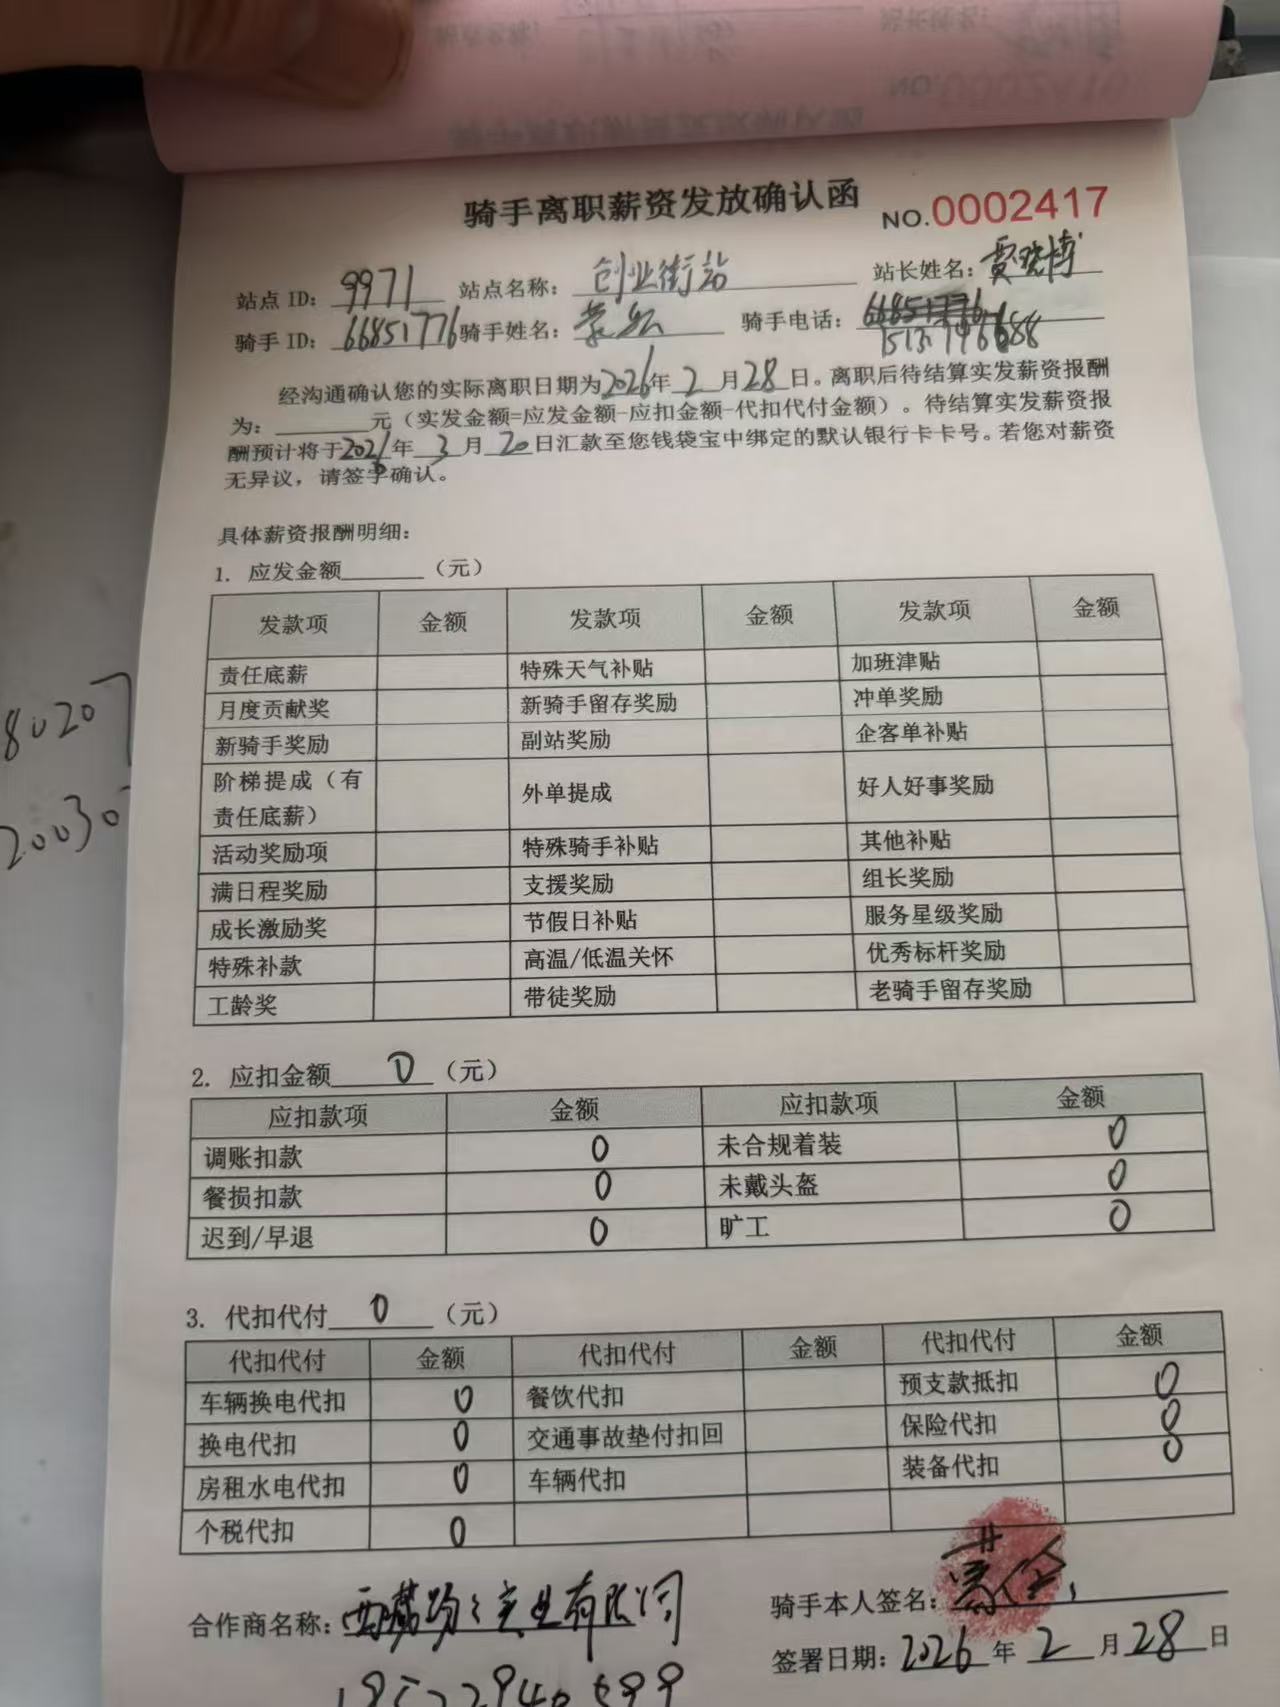 骑手离职薪资发放确认函
NO.0002417
站点 ID: 9971 站点名称: 创业街站 站长姓名: 贾晓博
骑手 ID: 66851776 骑手姓名: 骑手电话: 66851776
经沟通确认您的实际离职日期为2026年2月28日。离职后待结算实发薪资报酬
为:________元（实发金额=应发金额-应扣金额-代扣代付金额）。待结算实发薪资报
酬预计将于2026年3月20日汇款至您钱袋宝中绑定的默认银行卡卡号。若您对薪资
无异议，请签字确认。
具体薪资报酬明细:
1. 应发金额______（元）
发款项 金额 发款项 金额 发款项 金额
责任底薪 特殊天气补贴 加班津贴
月度贡献奖 新骑手留存奖励 冲单奖励
新骑手奖励 副站奖励 企客单补贴
阶梯提成（有
责任底薪） 外单提成 好人好事奖励
活动奖励项 特殊骑手补贴 其他补贴
满日程奖励 支援奖励 组长奖励
成长激励奖 节假日补贴 服务星级奖励
特殊补款 高温/低温关怀 优秀标杆奖励
工龄奖 带徒奖励 老骑手留存奖励
2. 应扣金额 0 （元）
应扣款项 金额 应扣款项 金额
调账扣款 0 未合规着装 0
餐损扣款 0 未戴头盔 0
迟到/早退 0 旷工 0
3. 代扣代付 0 （元）
代扣代付 金额 代扣代付 金额 代扣代付 金额
车辆换电代扣 0 餐饮代扣 预支款抵扣 0
换电代扣 0 交通事故垫付扣回 保险代扣 0
房租水电代扣 0 车辆代扣 装备代扣 0
个税代扣 0
合作商名称: 实业有限公司
骑手本人签名:
签署日期: 2026年2月28日
80207